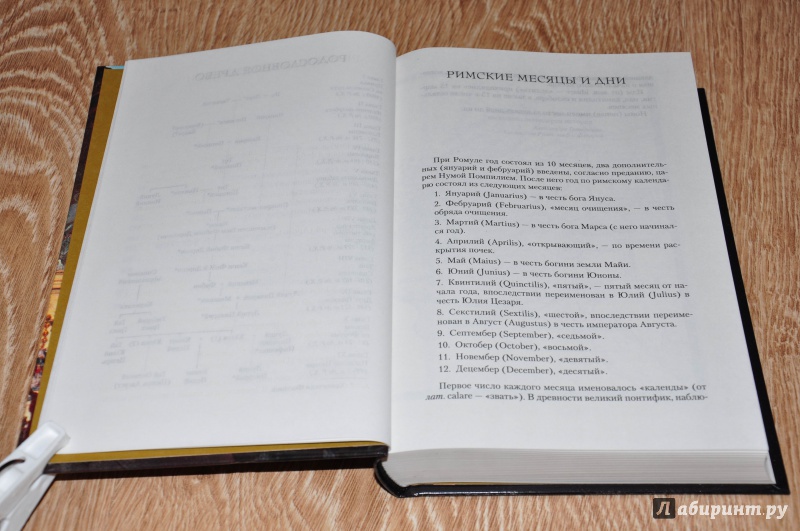 РИМСКИЕ МЕСЯЦЫ И ДНИ
При Ромуле год состоял из 10 месяцев, два дополнитель-
ных (януарий и фебруарий) введены, согласно преданию, ца-
рем Нумой Помпилием. После него год по римскому календа-
рю состоял из следующих месяцев:
1. Януарий (Januarius) — в честь бога Януса.
2. Фебруарий (Februarius), «месяц очищения», — в честь
обряда очищения.
3. Мартий (Martius) — в честь бога Марса (с него начинал-
ся год).
4. Априлий (Aprilis), «открывающий», — по времени рас-
крытия почек.
5. Май (Maius) — в честь богини земли Майи.
6. Юний (Junius) — в честь богини Юноны.
7. Квинтилий (Quinctilis), «пятый», — пятый месяц от на-
чала года, впоследствии переименован в Юлий (Julius) в
честь Юлия Цезаря.
8. Секстилий (Sextilis), «шестой», впоследствии переиме-
нован в Август (Augustus) в честь императора Августа.
9. Септембер (September), «седьмой».
10. Октобер (October), «восьмой».
11. Новембер (November), «девятый».
12. Децембер (December), «десятый».
Первое число каждого месяца именовалось «календы» (от
лат. calare — «звать»). В древности великий понтифик, наблю-
Лабиринт.ру